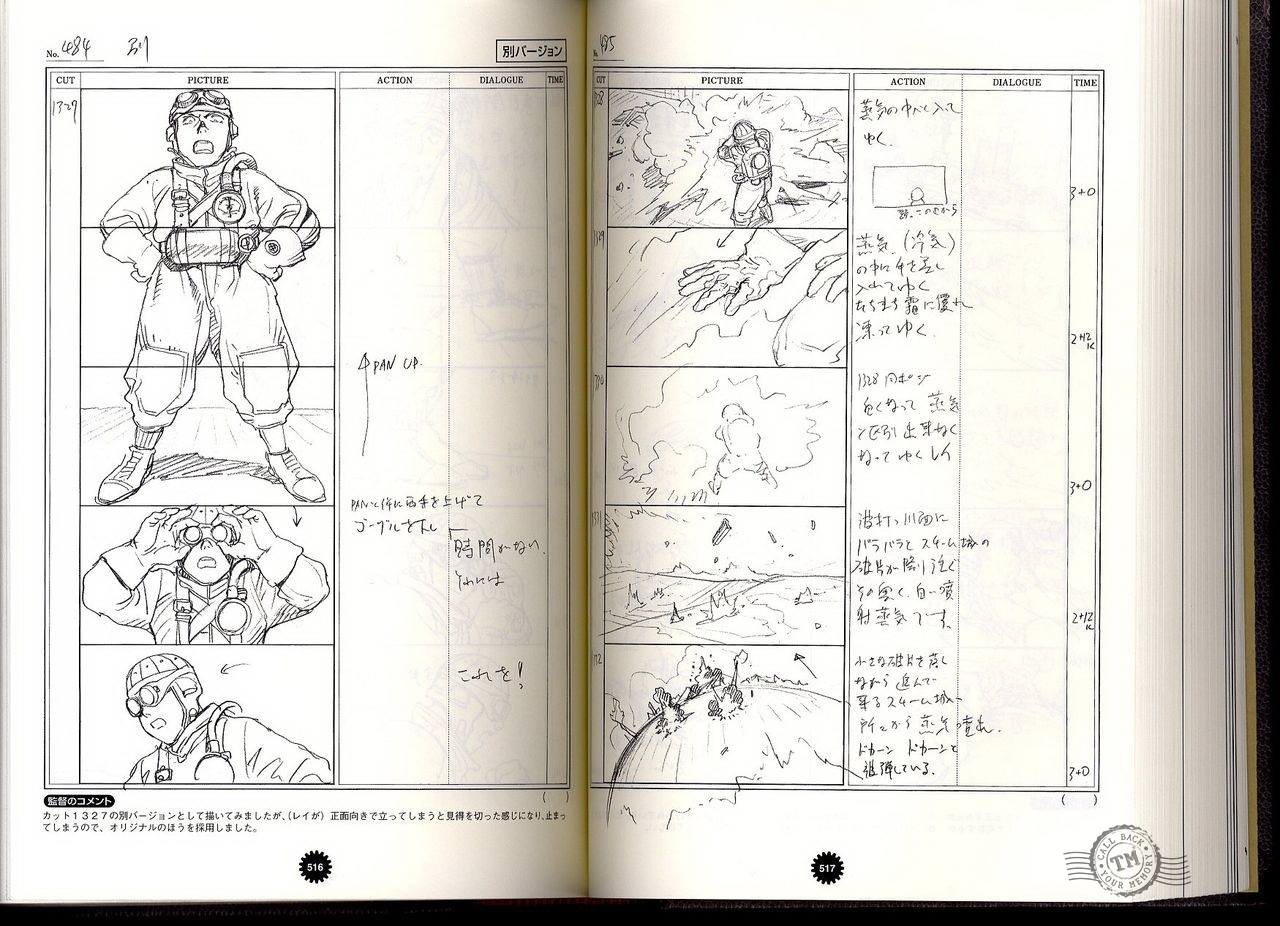 No. 484 別
別バージョン
CUT PICTURE ACTION DIALOGUE TIME
1327
PAN UP.
PANと伴に両手を上げて
時間がない
それには
これを!
監督のコメント
カット1327の別バージョンとして描いてみましたが、(レイが) 正面向きで立ってしまうと見得を切った感じになり、止まっ
てしまうので、オリジナルのほうを採用しました。
516
485
CUT PICTURE ACTION DIALOGUE TIME
1328
蒸気の中へと入って
ゆく.
3+0
1329
蒸気 (冷気)
の中に手を差し
入れてゆく
たちまち霜に覆れ
凍ってゆく.
2+12
K
1330
1328 同ポジ
白くなって 蒸気
と区別出来なく
なってゆくレイ
3+0
1331
波打つ川面に
バラバラと スチーム城の
破片が降り注ぐ
その奥く、白い噴
射蒸気です。
2+12
K
小さな破片を落し
ながら 進んで
来るスチーム城
所々から蒸気噴出.
ドカーン ドカーンと
している.
3+0
517
CALL BACK
TM
YOUR MEMORY